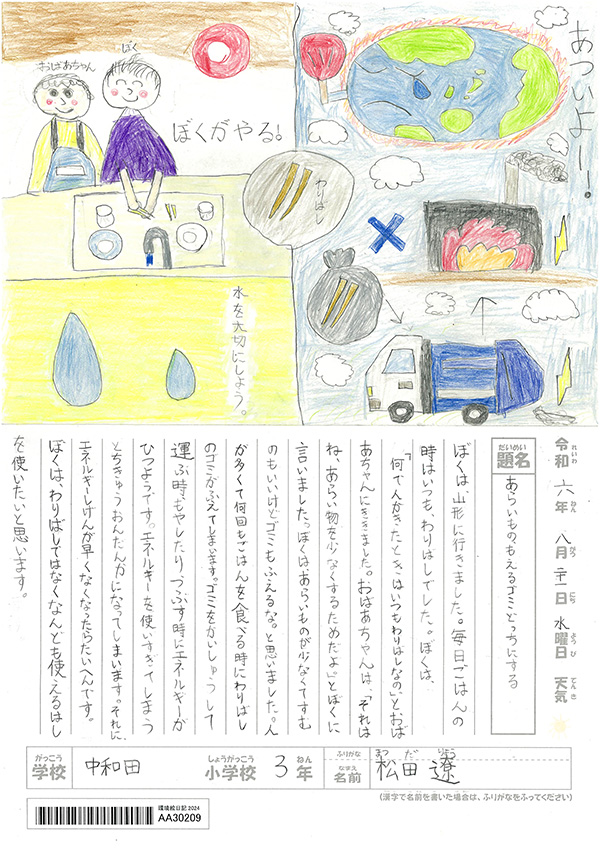 おばあちゃん
ぼく
ぼくがやる!
わりばし
あつーいよー。
水を大切にしよう。
令和 六年 八月 二十一日 水曜日 天気
れいわ ねん がつ にち ようび てんき
だいめい
題名
あらいもの、もえるゴミどっちにする
ぼくは山形に行きました。毎日ごはんの
時はいつも、わりばしでした。ぼくは、
「何で人がきたときはいつもわりばしなの」とおば
あちゃんにききました。おばあちゃんは、「それは
ね、あらい物を少なくするためだよ。」とぼくに
言いました。ぼくは、あらいものが少なくてすむ
のもいいけどゴミもふえるな。と思いました。人
が多くて何回もごはんを食べる時にわりばし
のゴミがふえてしまいます。ゴミをかいしゅうして
運ぶ時、もやしたりつぶす時にエネルギーが
ひつようです。エネルギーを使いすぎてしまう
とちきゅうおんだんかになってしまいます。それに、
エネルギーしげんが早くなくなったらたいへんです。
ぼくは、わりばしではなくなんども使えるはし
を使いたいと思います。
がっこう
学校
中和田
しょうがっこう
小学校
3
ねん
年
ふりがな
なまえ
名前
まつ だ りょう
松田 遼
(漢字で名前を書いた場合は、ふりがなをふってください)
環境絵日記2024
AA30209